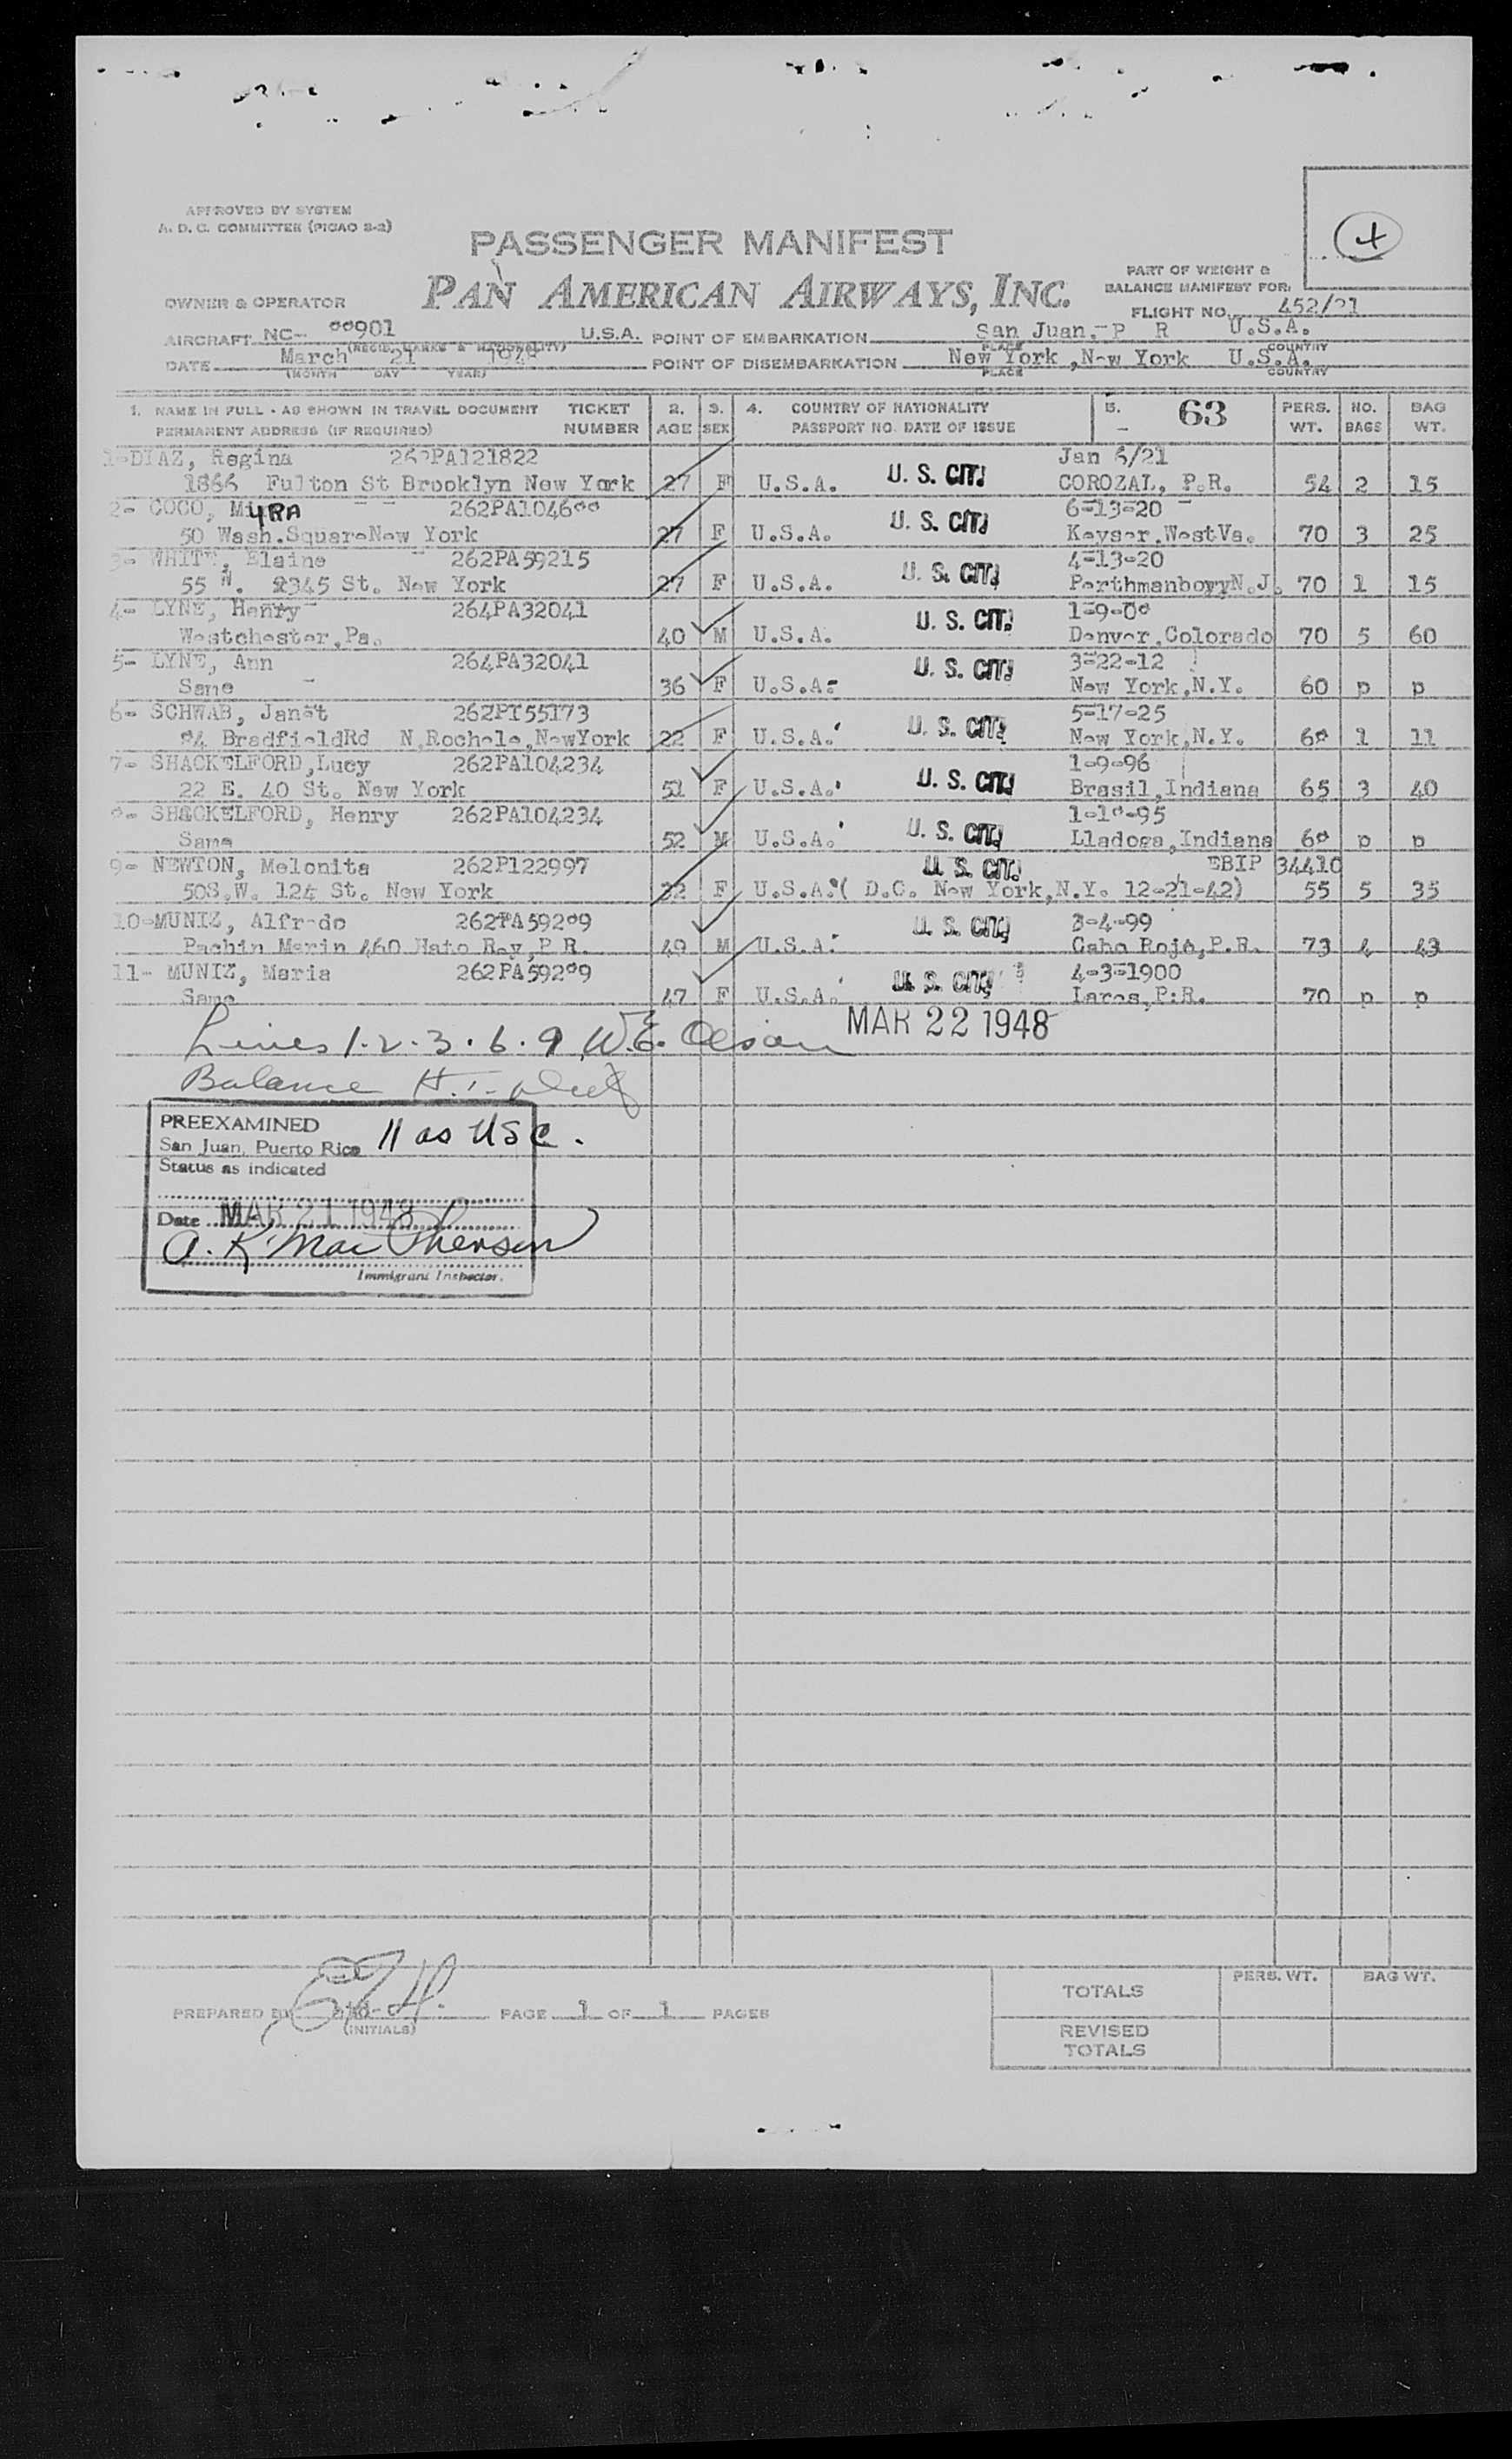 APPROVED BY SYSTEM
A. D. C. COMMITTEE (PICAO S-2)
PASSENGER MANIFEST
PAN AMERICAN AIRWAYS, INC.
PART OF WEIGHT &
BALANCE MANIFEST FOR:
OWNER & OPERATOR
FLIGHT NO. 452/21
AIRCRAFT NC- 88901 U.S.A. POINT OF EMBARKATION San Juan, P R U.S.A.
(REGIS. MARKS & NATIONALITY) PLACE COUNTRY
DATE March 21 1948 POINT OF DISEMBARKATION New York ,New York U.S.A.
(MONTH DAY YEAR) PLACE COUNTRY
1. NAME IN FULL - AS SHOWN IN TRAVEL DOCUMENT TICKET 2. 3. 4. COUNTRY OF NATIONALITY 5. 63 PERS. NO. BAG
PERMANENT ADDRESS (IF REQUIRED) NUMBER AGE SEX PASSPORT NO. DATE OF ISSUE WT. BAGS WT.
1-DIAZ, Regina 262PA121822 Jan 6/21
1866 Fulton St Brooklyn New York 27 F U.S.A. U. S. CIT. COROZAL, P.R. 54 2 15
2- COCO, MYRA 262PA104688 6-13-20
50 Wash.SquareNew York 27 F U.S.A. U. S. CIT. Keyser.WestVa. 70 3 25
3- WHITE, Elaine 262PA59215 4-13-20
55 W. 2345 St. New York 27 F U.S.A. U. S. CIT. PerthmanboyyN.J. 70 1 15
4- LYNE, Henry 264PA32041 1-9-08
Westchester,Pa. 40 M U.S.A. U. S. CIT. Denver,Colorado 70 5 60
5- LYNE, Ann 264PA32041 3-22-12
Same 36 F U.S.A. U. S. CIT. New York,N.Y. 60 p p
6- SCHWAB, Janet 262PI55173 5-17-25
84 BradfieldRd N,Rochele,NewYork 22 F U.S.A. U. S. CIT. New York,N.Y. 68 1 11
7- SHACKELFORD,Lucy 262PA104234 1-9-96
22 E. 40 St. New York 51 F U.S.A. U. S. CIT. Brasil,Indiana 65 3 40
8- SHACKELFORD, Henry 262PA104234 1-18-95
Same 52 M U.S.A. U. S. CIT. Lladoga,Indiana 68 p p
9- NEWTON, Melonita 262P122997 U. S. CIT. EBIP 34410
508.W. 124 St. New York 32 F U.S.A. ( D.C. New York,N.Y. 12-21-42) 55 5 35
10-MUNIZ, Alfredo 262PA59289 3-4-99
Pachin Marin 460 Hato Rey,P R. 49 M U.S.A. U. S. CIT. Cabo Rojo,P.R. 73 4 43
11- MUNIZ, Maria 262PA59289 4-3-1900
Same 47 F U.S.A. U. S. CIT. Lares,P.R. 70 p p
MAR 22 1948
Lines 1-2-3-6-9 W.E. Olson
Balance
PREEXAMINED
San Juan, Puerto Rico 11 as USC.
Status as indicated
Date MAR 21 1948
A. K. MacPherson
Immigrant Inspector.
PREPARED BY PAGE 1 OF 1 PAGES
(INITIALS)
PERS. WT. BAG WT.
TOTALS
REVISED
TOTALS